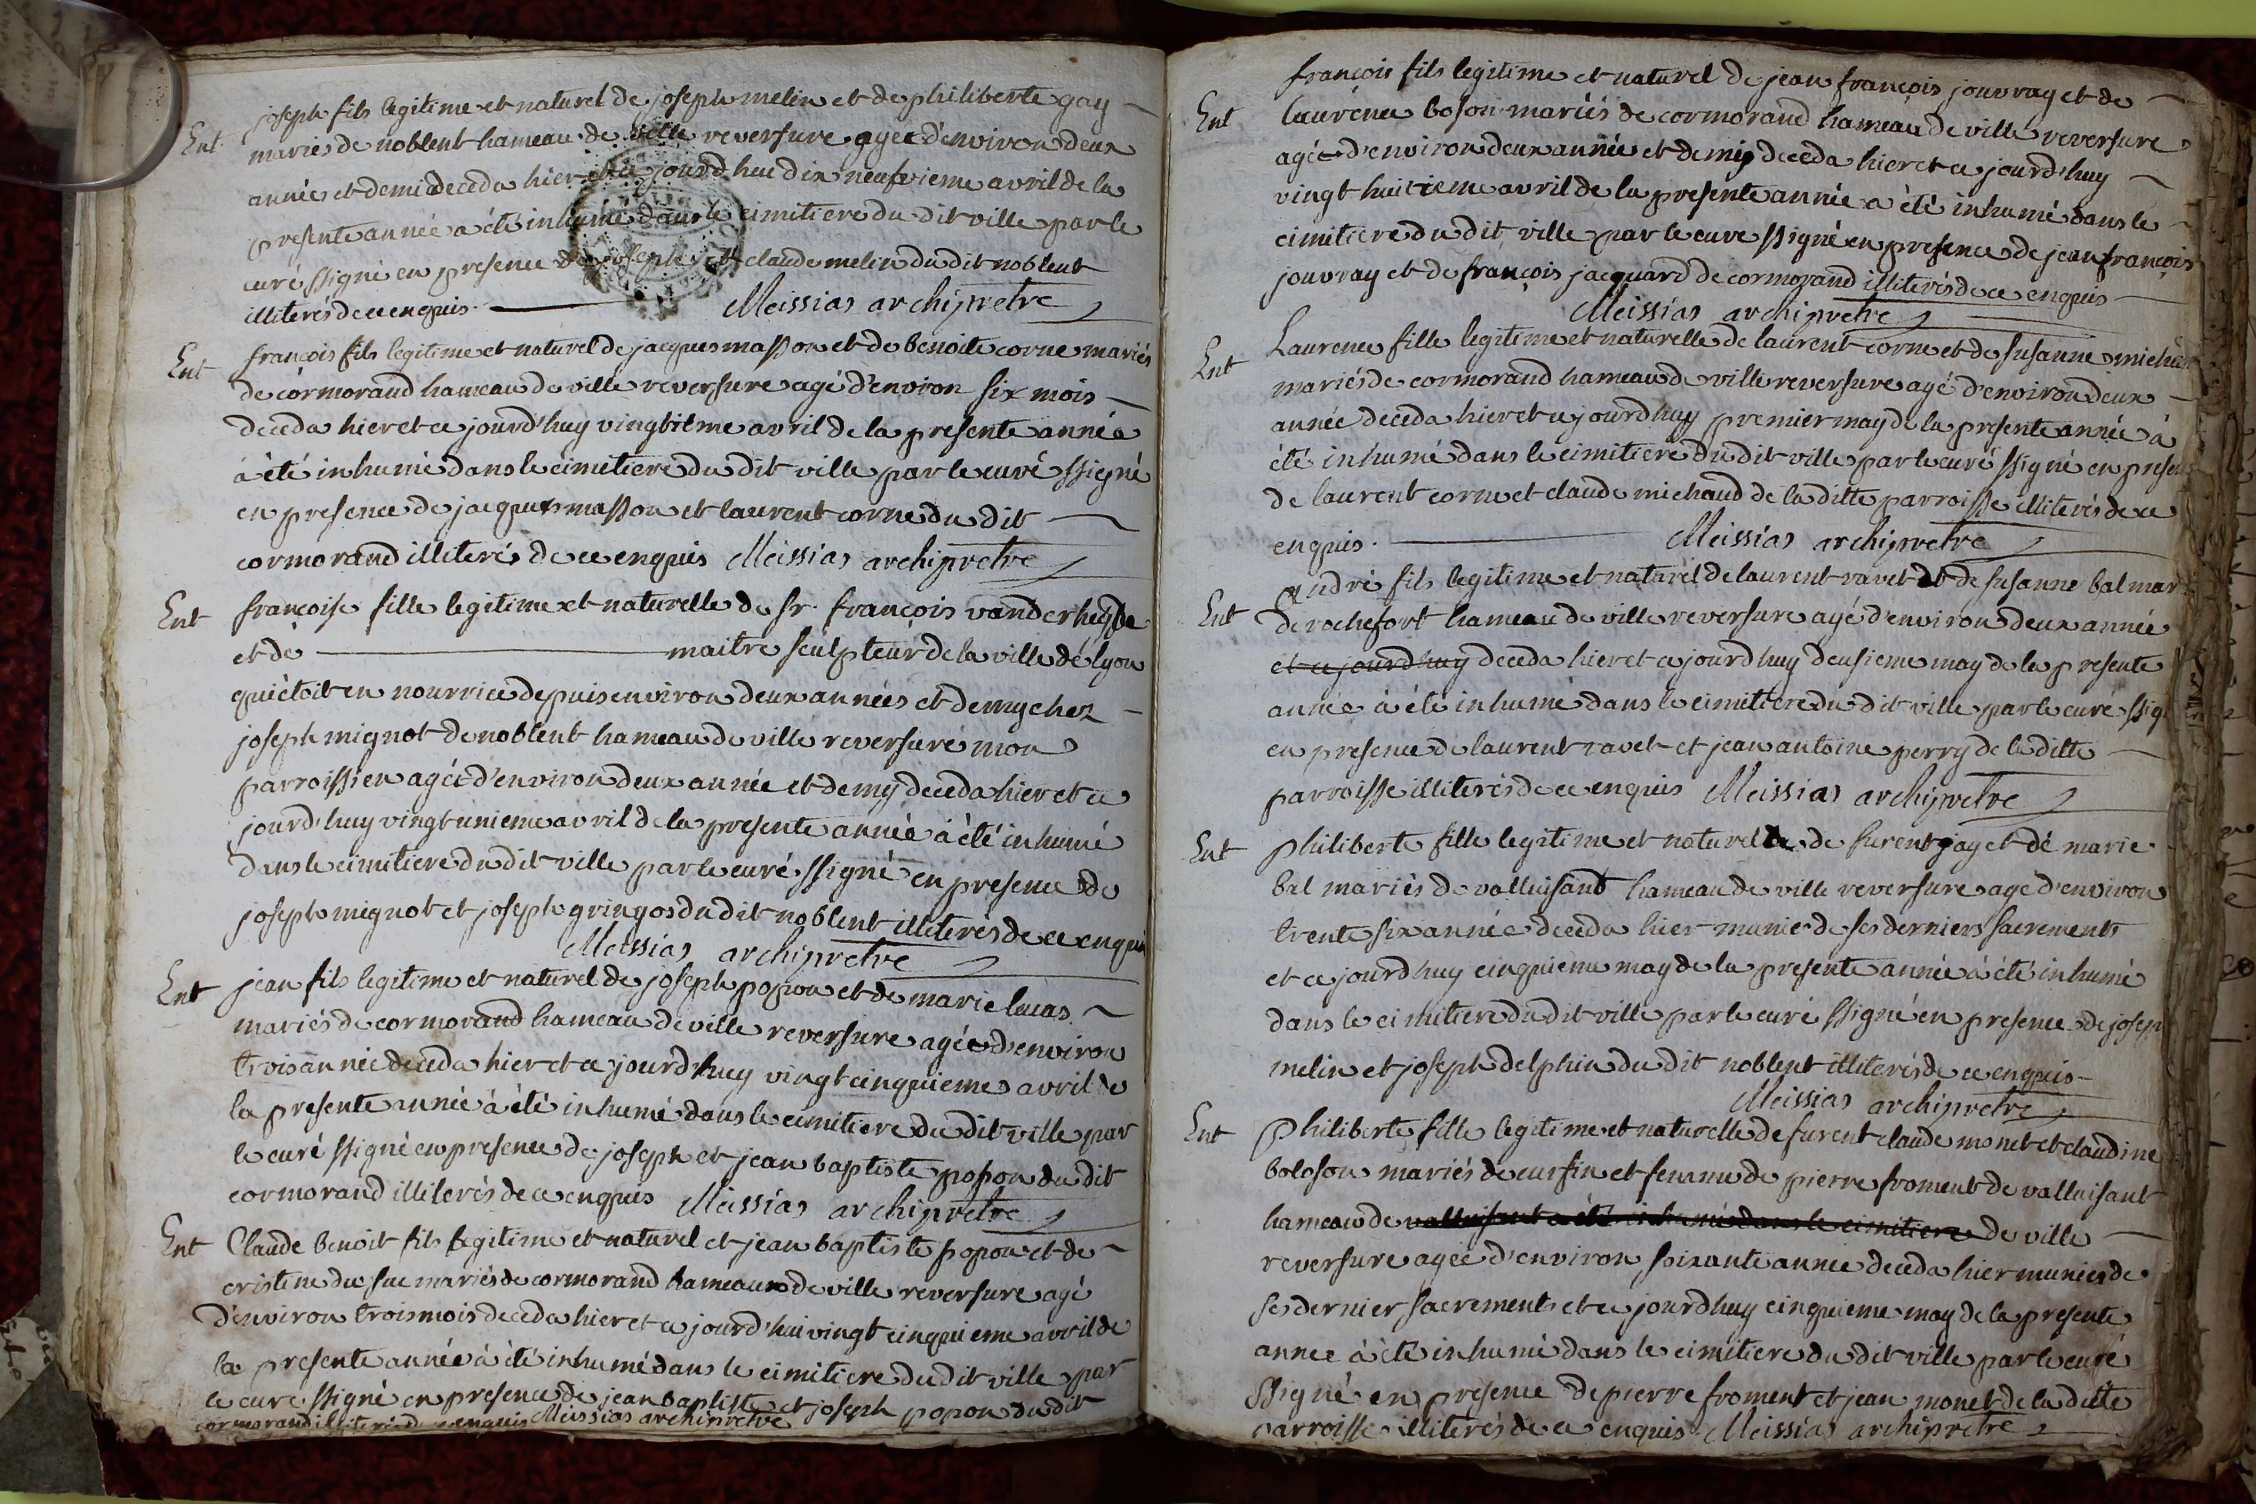 Ent joseph fils legitime et naturel de joseph melin et de philiberte gay
mariés de noblent hameau de ville reversure agée d'environ deux
années et demi deceda hier et ce jourd'hui dix neufvieme avril de la
presente année a été inhumé dans le cimitiere du dit ville par le
curé ssigné en presence de joseph et claude melin du dit noblent
illiterés de ce enquis. Meissias archiprêtre
Ent françois fils legitime et naturel de jacques masson et de benoite corne mariés
de cormorand hameau de ville reversure agé d'environ six mois
deceda hier et ce jourd'huy vingtieme avril de la presente année
à été inhumé dans le cimitiere du dit ville par le curé ssigné
en presence de jacques masson et laurent corne du dit
cormorand illiterés de ce enquis Meissias archiprêtre
Ent françoise fille legitime et naturelle de sr. françois vanderheyde
et de maitre sculpteur de la ville de lyon
qui étoit en nourrice depuis environ deux années et demy chez
joseph mignot de noblent hameau de ville reversure mon
parroissien agée d'environ deux année et demy deceda hier et ce
jourd'huy vingt unieme avril de la presente année à été inhumé
dans le cimitiere du dit ville par le curé ssigné en presence de
joseph mignot et joseph gringos du dit noblent illiterés de ce enquis
Meissias archiprêtre
Ent jean fils legitime et naturel de joseph popon et de marie lucas
mariés de cormorand hameau de ville reversure agée d'environ
trois année deceda hier et ce jourd'huy vingt cinquieme avril de
la presente année à été inhumé dans le cimitiere du dit ville par
le curé ssigné en presence de joseph et jean baptiste popon du dit
cormorand illiterés de ce enquis Meissias archiprêtre
Ent Claude benoit fils legitime et naturel et jean baptiste popon et de
cristine du suc mariés de cormorand hameau de ville reversure agé
d'environ trois mois deceda hier et ce jourd'hui vingt cinquieme avril de
la presente année à été inhumé dans le cimitiere du dit ville par
le curé ssigné en presence de jean baptiste et joseph popon du dit
cormorand illiterés de ce enquis Meissias archiprêtre
françois fils legitime et naturel de jean françois jouvray et de
Ent laurence boson mariés de cormorand hameau de ville reversure
agée d'environ deux année et demis deceda hier et ce jourd'huy
vingt huitieme avril de la presente année a été inhumé dans le
cimitiere du dit ville par le curé ssigné en presence de jean françois
jouvray et de françois jacquard de cormorand illiterés de ce enquis
Meissias archiprêtre
Ent Laurence fille legitime et naturelle de laurent corne et de susanne michaud
mariés de cormorand hameau de ville reversure agé d'environ deux
année deceda hier et ce jourd'huy premier may de la presente année à
été inhumé dans le cimitiere du dit ville par le curé ssigné en presen
de laurent corne et claude michaud de la ditte parroisse illiterés de ce
enquis. Meissias archiprêtre
andré fils legitime et naturel de laurent ravet et de susanne bal mar
Ent de rochefort hameau de ville reversure agé d'environ deux année
et ce jourd'huy deceda hier et ce jourd'huy deusieme may de la presente
année à été inhumé dans le cimitiere du dit ville par le curé ssig
en presence de laurent ravet et jean antoine perry de la ditte
parroisse illiterés de ce enquis Meissias archiprêtre
Ent Philiberte fille legitime et naturelle de furent gay et de marie
bal mariés de valluisant hameau de ville reversure age d'environ
trente six année deceda hier munie de ses derniers sacrements
et ce jourd'huy cinquieme may de la presente année à été inhumé
dans le cimitiere du dit ville par le curé ssigné en presence de joseph
melin et joseph delphin du dit noblent illiterés de ce enquis
Meissias archiprêtre
Ent Philiberte fille legitime et naturelle de furent claude monet et claudine
boloson mariés de curfin et femme de pierre froment de valluisant
hameau de valluisant a été inhumé dans le cimitiere de ville
reversure agée d'environ soixante annee deceda hier munies de
ses dernier sacrements et ce jourd'huy cinquieme may de la presente
annee à été inhumé dans le cimitiere du dit ville par le curé
ssigné en presence de pierre froment et jean monet de la ditte
parroisse illiterés de ce enquis Meissias archiprêtre